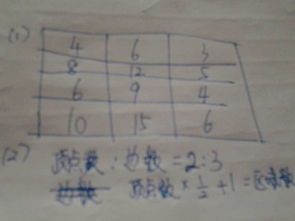 (1)
4 6 3
8 12 5
6 9 4
10 15 6
(2) 顶点数:边数=2:3
顶点数×1/2+1=区域数